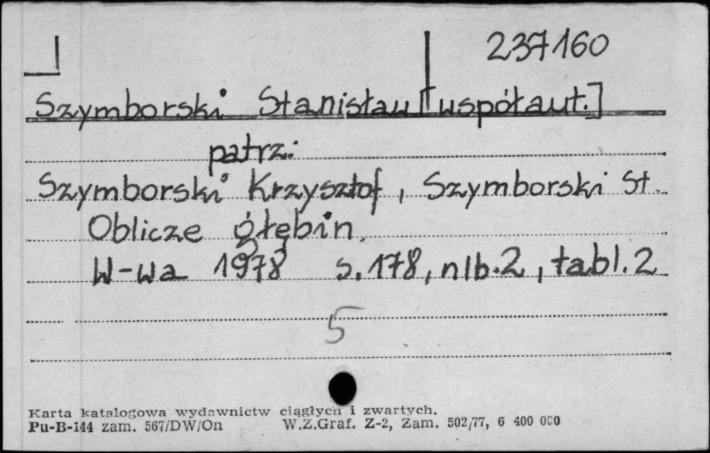 237160
Szymborski Stanisław [współaut.]
patrz:
Szymborski Krzysztof, Szymborski St.
Oblicze głębin.
W-wa 1978 s. 178, nlb. 2, tabl. 2
5
Karta katalogowa wydawnictw ciągłych i zwartych.
Pu-B-144 zam. 567/DW/On W.Z.Graf. Z-2, Zam. 502/77, 6 400 000